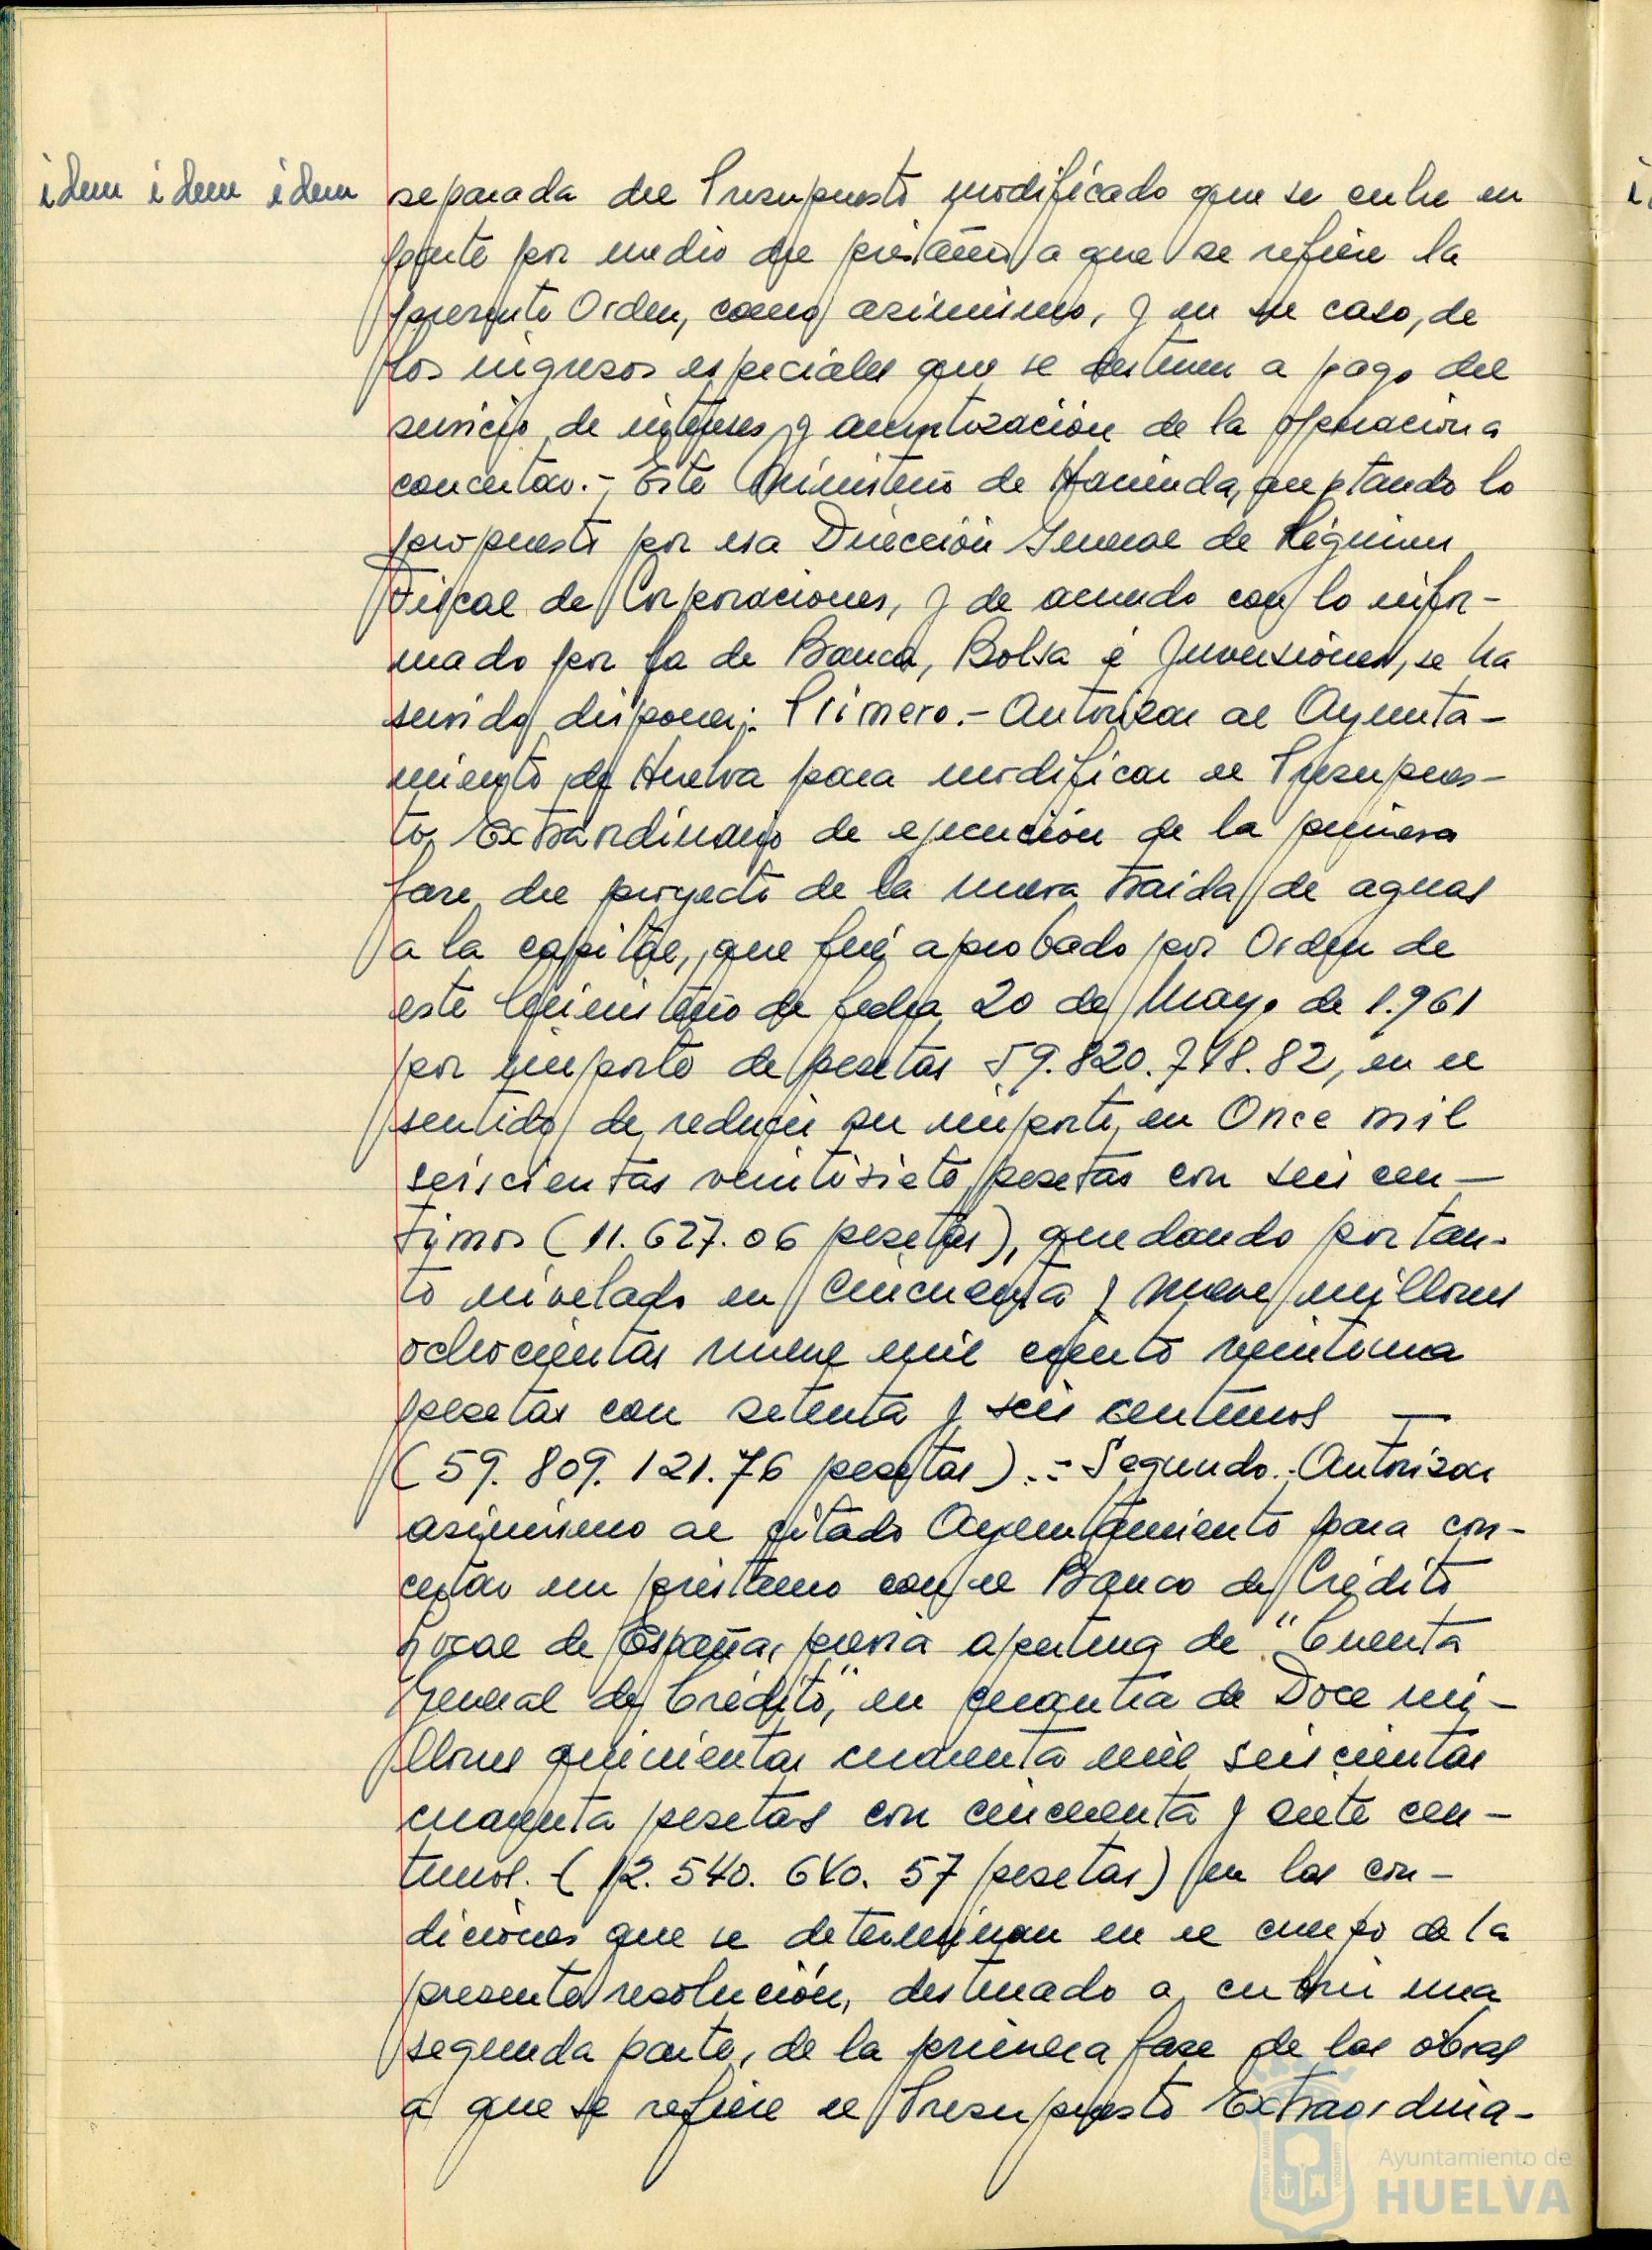 idem idem idem
separada del Presupuesto modificado que se cubre en
parte por medio del préstamo a que se refiere la
presente Orden, como asimismo, y en su caso, de
los ingresos especiales que se destinen a pago del
servicio de intereses y amortización de la operación a
concertar.- Este Ministerio de Hacienda, aceptando lo
propuesto por esa Dirección General de Régimen
Fiscal de Corporaciones, y de acuerdo con lo infor-
mado por la de Banca, Bolsa é Inversiones, se ha
servido disponer: Primero.- Autorizar al Ayunta-
miento de Huelva para modificar el Presupues-
to Extraordinario de ejecución de la primera
fase del proyecto de la nueva traida de aguas
a la capital, que fué aprobado por Orden de
este Ministerio de fecha 20 de Mayo de 1.961
por importe de pesetas 59.820.748.82, en el
sentido de reducir su importe, en Once mil
seiscientas veintisiete pesetas con seis cen-
timos (11.627.06 pesetas), quedando por tan-
to nivelado en Cincuenta y nueve millones
ochocientas nueve mil ciento veintiuna
pesetas con setenta y seis centimos —
(59.809.121.76 pesetas).- Segundo.- Autorizar
asimismo al citado Ayuntamiento para con-
certar un préstamo con el Banco de Crédito
Local de España, previa apertura de "Cuenta
General de Crédito," en cuantia de Doce mi-
llones quinientas cuarenta mil seiscientas
cuarenta pesetas con cincuenta y siete cen-
timos. (12.540.640.57 pesetas) en las con-
diciones que se determinan en el cuerpo de la
presente resolución, destinado a cubrir una
segunda parte, de la primera fase de las obras
a que se refiere el Presupuesto Extraordina-
Ayuntamiento de
HUELVA